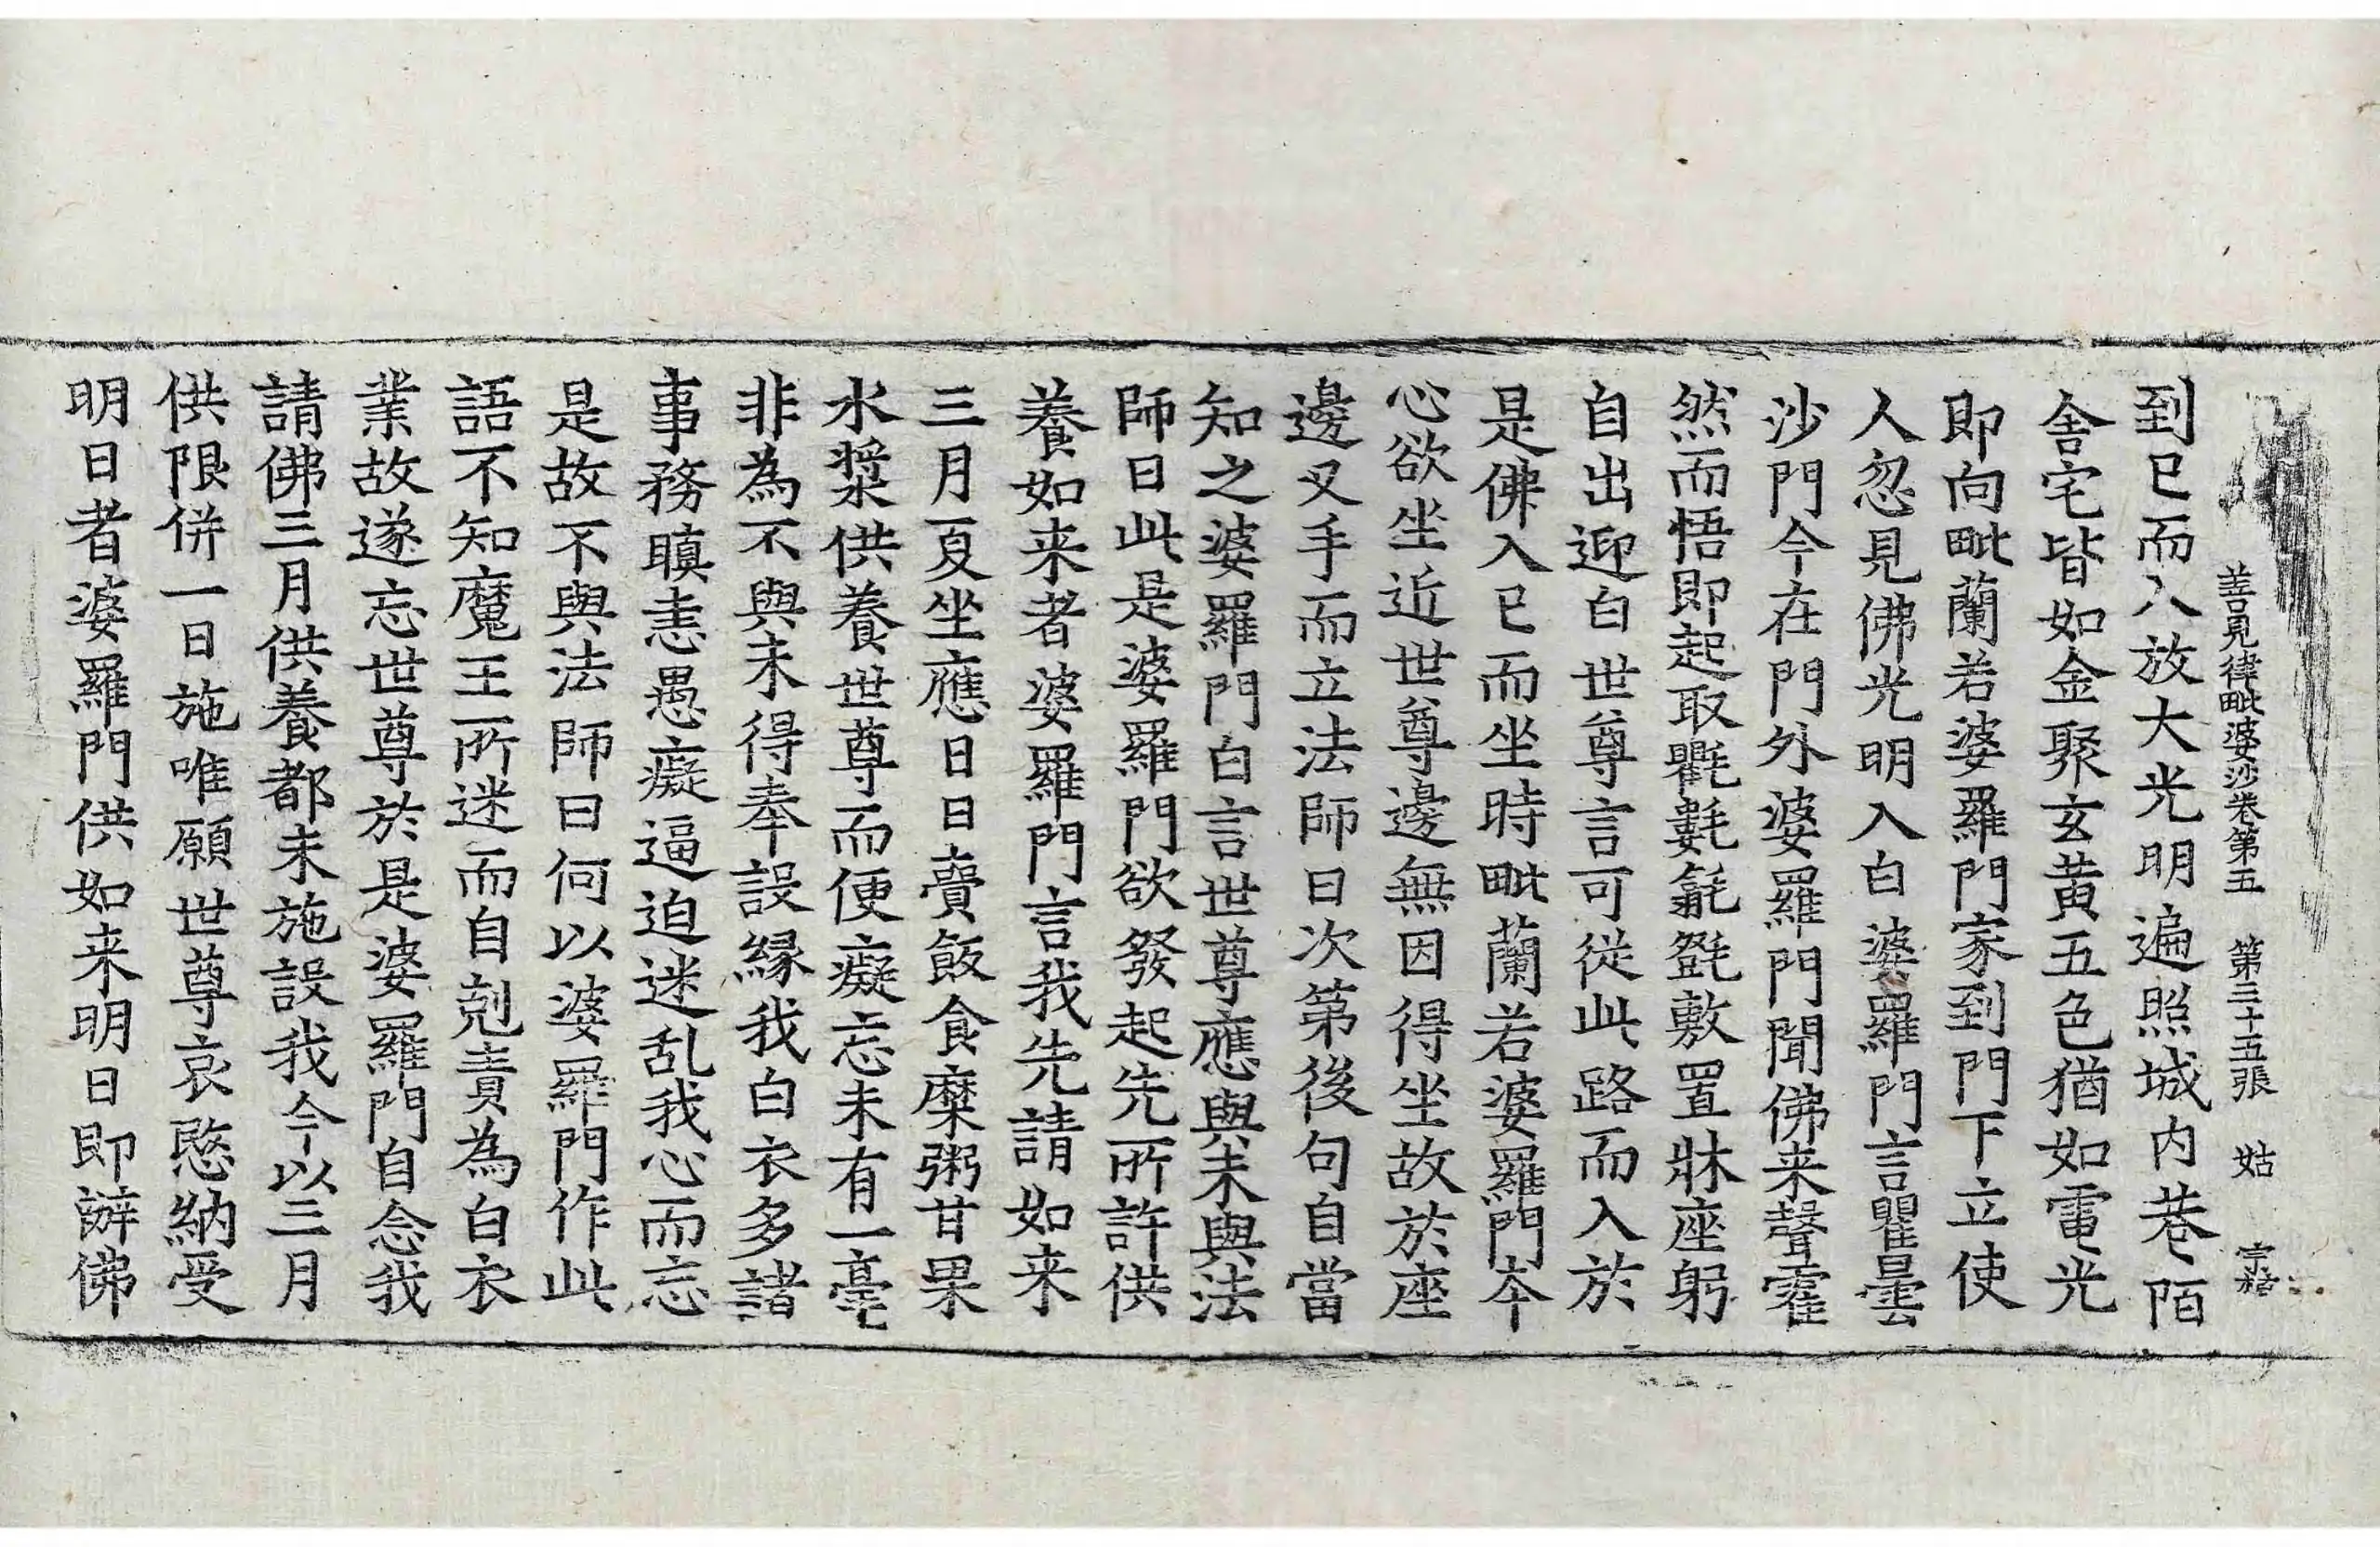 善見律毗婆沙卷第五　第三十五張　姑
到已而入放大光明遍照城内巷陌
舍宅皆如金聚玄黃五色猶如電光
即向毗蘭若婆羅門家到門下立使
人忽見佛光明入白婆羅門言瞿曇
沙門今在門外婆羅門聞佛来聲霍
然而悟即起取氍𣰽毾㲪敷置牀座躬
自出迎白世尊言可從此路而入於
是佛入已而坐時毗蘭若婆羅門夲
心欲坐近世尊邊無因得坐故於座
邊叉手而立法師曰次第後句自當
知之婆羅門白言世尊應與未與法
師曰此是婆羅門欲發起先所許供
養如来者婆羅門言我先請如来
三月夏坐應日日賷飯食糜粥甘果
水漿供養世尊而便癡忘未有一毫
非為不與未得奉設縁我白衣多諸
事務瞋恚愚癡逼迫迷乱我心而忘
是故不與法師曰何以婆羅門作此
語不知魔王所迷而自剋責為白衣
業故遂忘世尊於是婆羅門自念我
請佛三月供養都未施設我今以三月
供限併一日施唯願世尊哀愍納受
明日者婆羅門供如来明日即辦佛